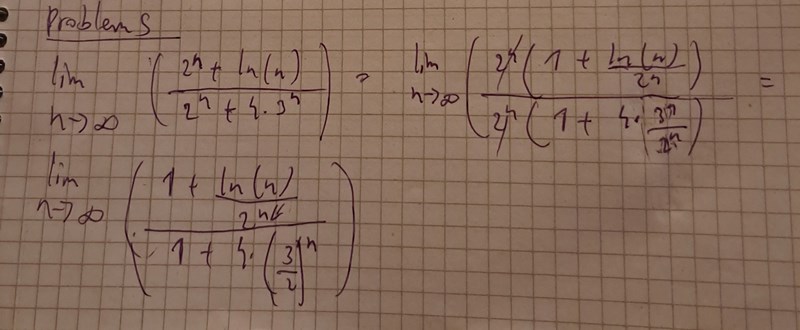 Problem 5
lim n→∞ ( (2^n + ln(n)) / (2^n + 4·3^n) ) = lim n→∞ ( 2^n (1 + ln(n)/2^n) / 2^n (1 + 4·(3^n/2^n)) ) =
lim n→∞ ( (1 + ln(n)/2^n) / (1 + 4·(3/2)^n) )